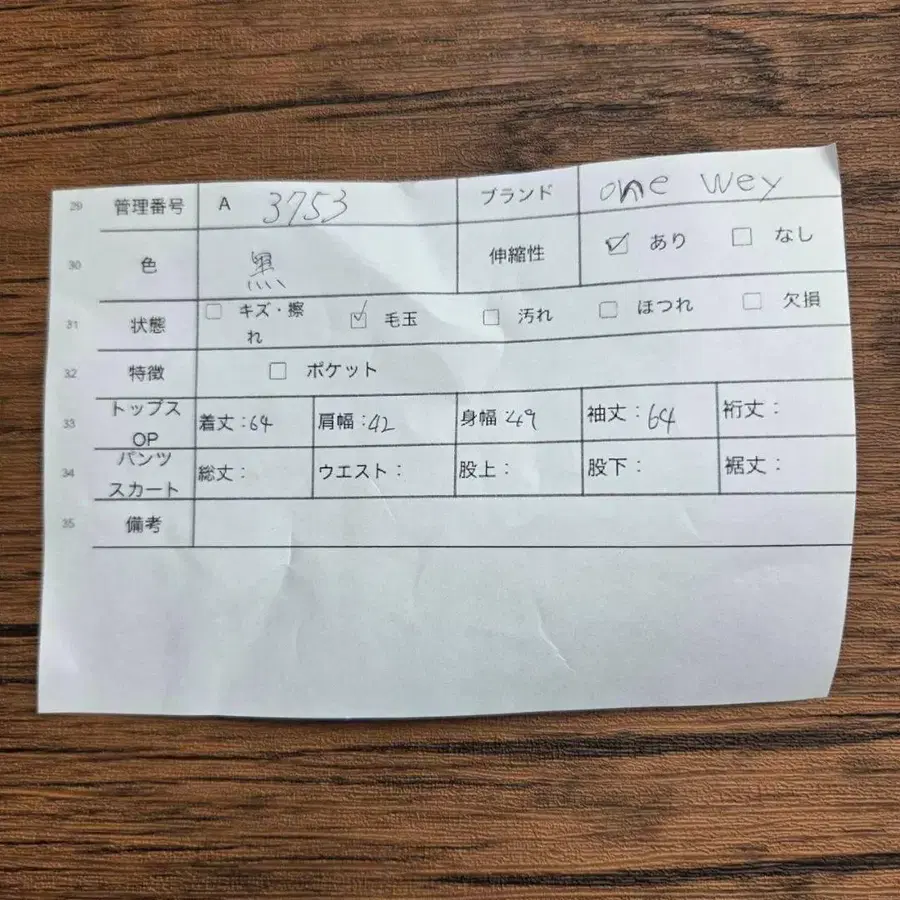 29 管理番号 A 3753 ブランド one wey
30 色 黒 伸縮性 ☑ あり ☐ なし
31 状態 ☐ キズ・擦れ ☑ 毛玉 ☐ 汚れ ☐ ほつれ ☐ 欠損
32 特徴 ☐ ポケット
33 トップス OP 着丈:64 肩幅:42 身幅:49 袖丈:64 裄丈:
34 パンツ スカート 総丈: ウエスト: 股上: 股下: 裾丈:
35 備考